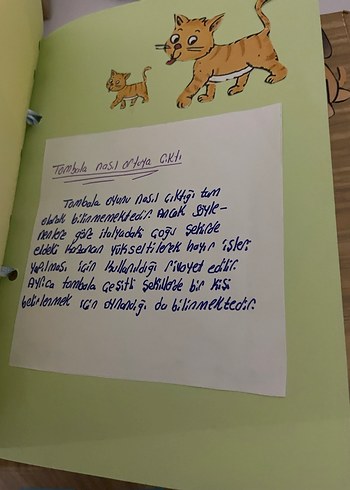 Tombala nasıl ortaya çıktı
Tombala oyunu nasıl çıktığı tam
olarak bilinmemektedir. Ancak söyle-
nenlere göre italyadaki çoğu şekilde
eldeki kazanan yükseltilerek hayır işleri
yapılması için kullanıldığı rivayet edilir.
Ayrıca tombala çeşitli şekillerde bir kişi
belirlenmek için oynandığı da bilinmektedir.